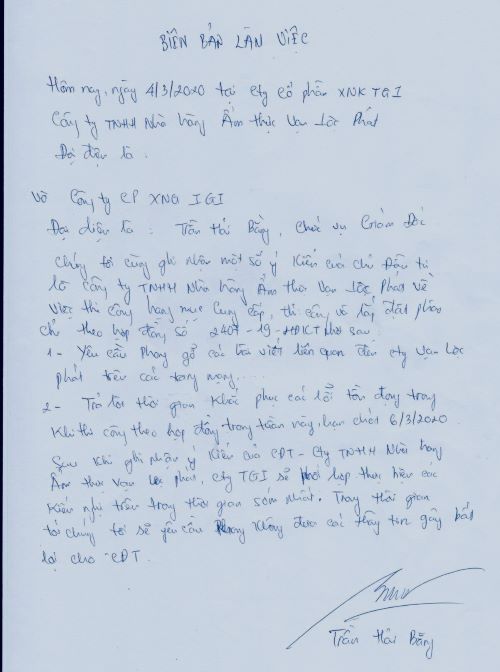 BIÊN BẢN LÀM VIỆC
Hôm nay, ngày 4/3/2020 tại Cty cổ phần XNK TGI
Công ty TNHH Nhà hàng Ẩm thực Vạn Lộc Phát
Đại diện là :
Và Công ty CP XNG IGI
Đại diện là : Trần Hải Bằng, Chức vụ Giám Đốc
Chúng tôi cùng ghi nhận một số ý kiến của chủ Đầu tư
là công ty TNHH Nhà hàng Ẩm thực Vạn Lộc Phát về
việc thi công hạng mục Cung cấp, thi công và lắp đặt phào
chỉ theo hợp đồng số 2407-19-HĐKT như sau
1- Yêu cầu Phong gỡ các bài viết liên quan đến cty Vạn Lộc
phát trên các trang mạng,...
2- Trả lời thời gian Khắc phục các lỗi tồn đọng trong
Khi thi công theo hợp đồng trong tuần này, hạn chót 6/3/2020
Sau khi ghi nhận ý kiến của CĐT - Cty TNHH Nhà hàng
Ẩm thực vạn lộc phát, Cty TGI sẽ phối hợp thực hiện các
kiến nghị trên trong thời gian sớm nhất. Trong thời gian
tới chúng tôi sẽ yêu cầu Phong không đưa các thông tin gây bất
lợi cho CĐT.
Trần Hải Bằng